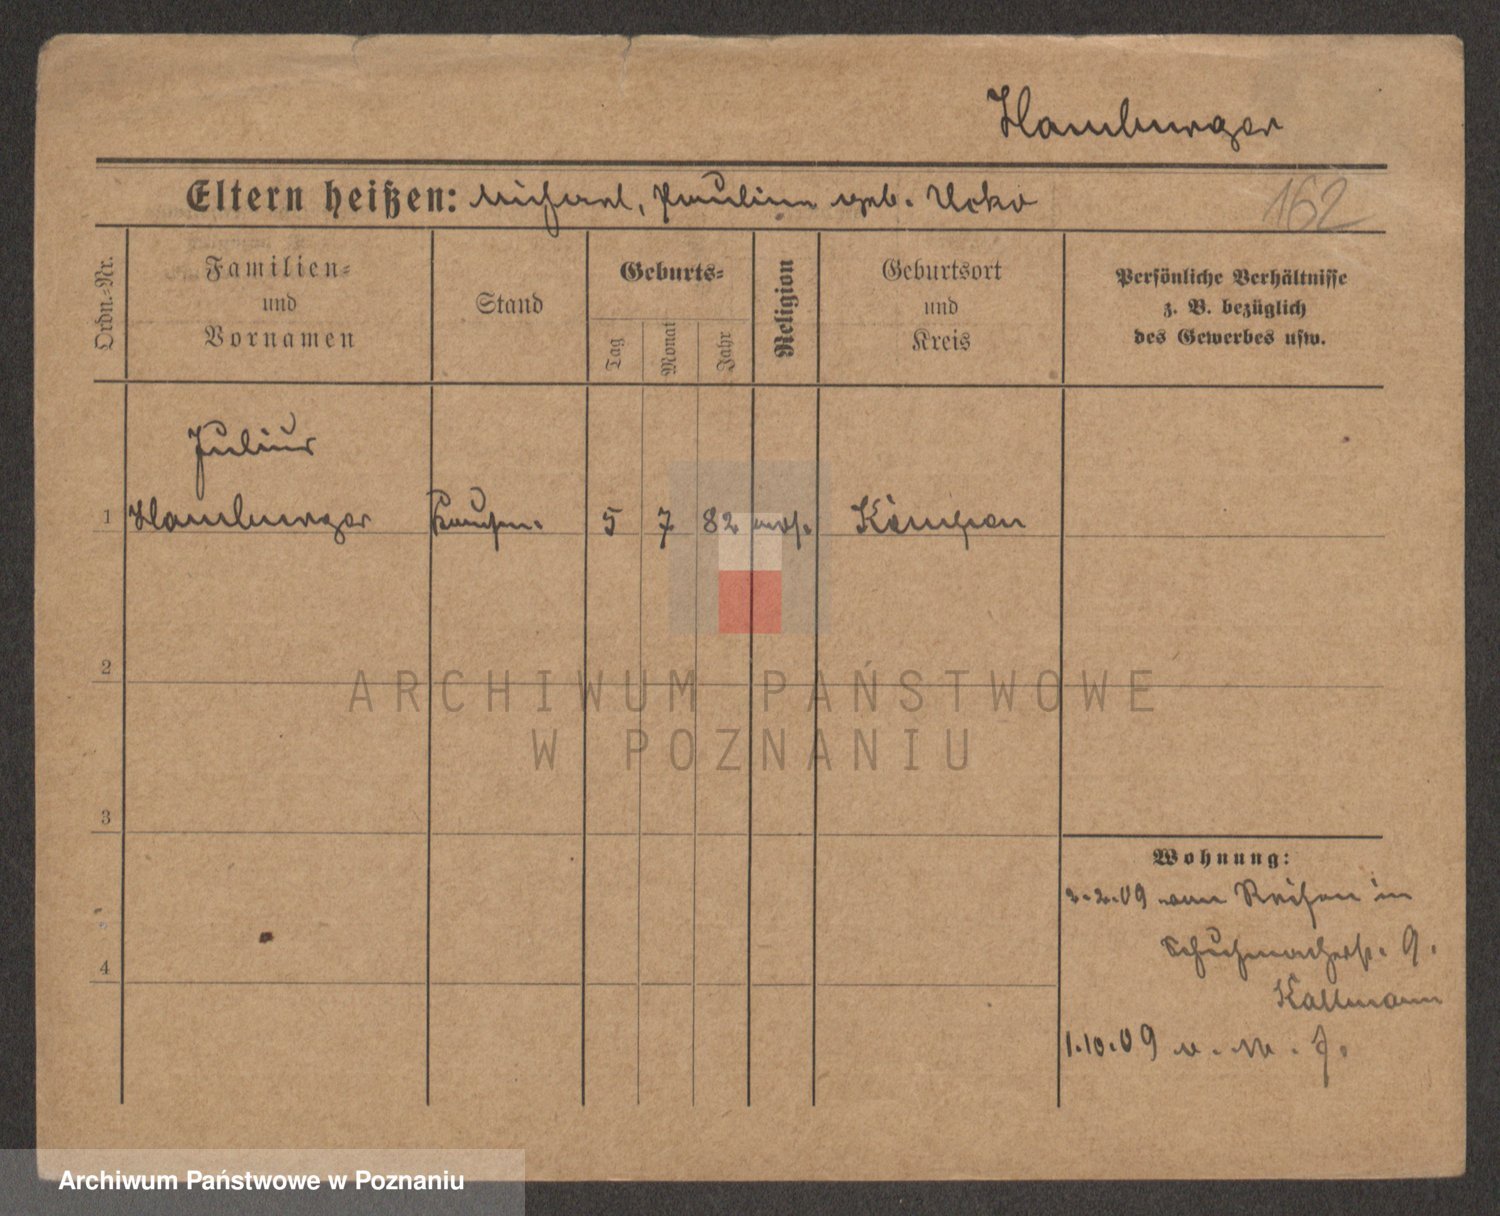 Hamburger
Eltern heißen: Michael, Pauline geb. Ucko
162
Ordn.-Nr.
Familien-
und
Vornamen
Stand
Geburts-
Tag
Monat
Jahr
Religion
Geburtsort
und
Kreis
Persönliche Verhältnisse
z. B. bezüglich
des Gewerbes usw.
Julius
1 Hamburger Kaufm. 5 7 82 mos. Kempen
2
3
4
ARCHIWUM PAŃSTWOWE
W POZNANIU
Wohnung:
2.2.09 von Reisen in
Schuhmacherstr. 9.
Kallmann
1.10.09
Archiwum Państwowe w Poznaniu